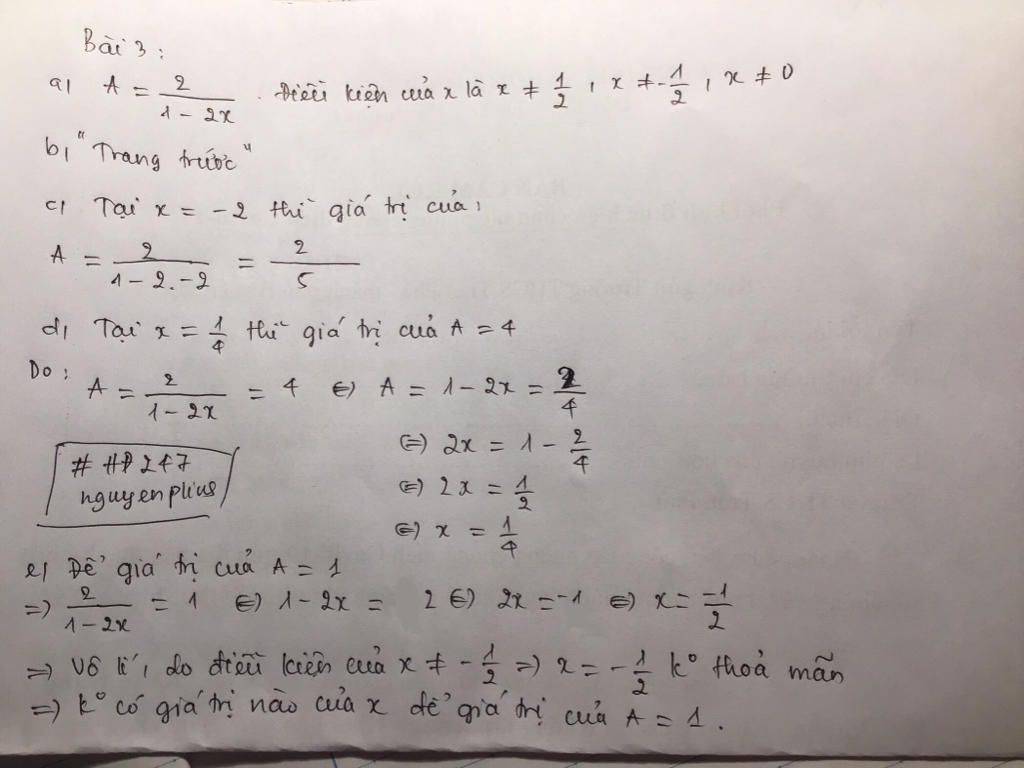 Bài 3:
a, A = 2/(1 - 2x). Điều kiện của x là x ≠ 1/2, x ≠ -1/2, x ≠ 0
b, "Trang trước"
c, Tại x = -2 thì giá trị của:
A = 2/(1 - 2.-2) = 2/5
d, Tại x = 1/4 thì giá trị của A = 4
Do: A = 2/(1 - 2x) = 4 ⇔ A = 1 - 2x = 2/4
⇔ 2x = 1 - 2/4
⇔ 2x = 1/2
⇔ x = 1/4
# HP247
nguyenplius
e, Để giá trị của A = 1
⇒ 2/(1 - 2x) = 1 ⇔ 1 - 2x = 2 ⇔ 2x = -1 ⇔ x = -1/2
⇒ Vô lí, do điều kiện của x ≠ -1/2 ⇒ x = -1/2 k° thoả mãn
⇒ k° có giá trị nào của x để giá trị của A = 1.